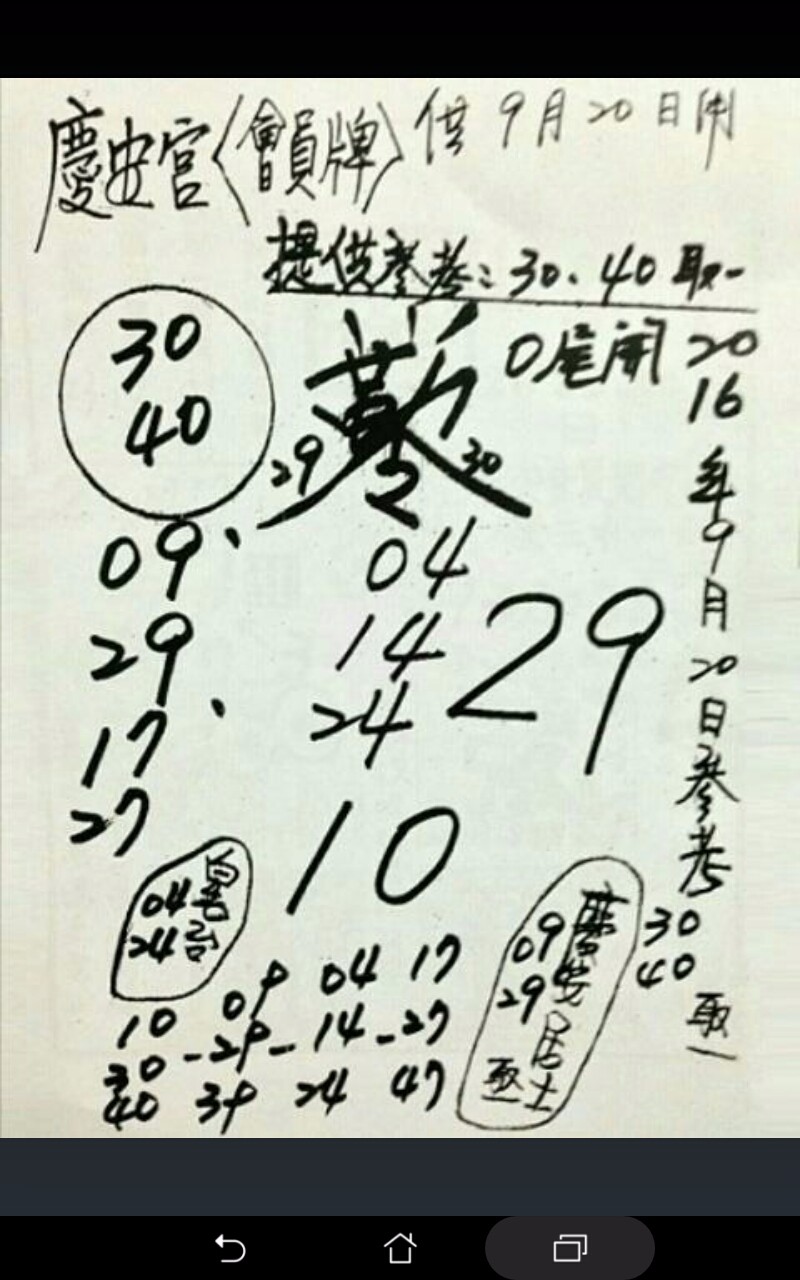 慶安宮〈會員牌〉供9月20日開
提供參考:30、40取一
0尾開
30
40
29
30
2016年9月20日參考
30
40
取一
09、
29
17、
27
04
14
24
29
10
04
24
10 09 04 17
30-29-14-27
40 39 24 47
慶安居士
09
29
取一